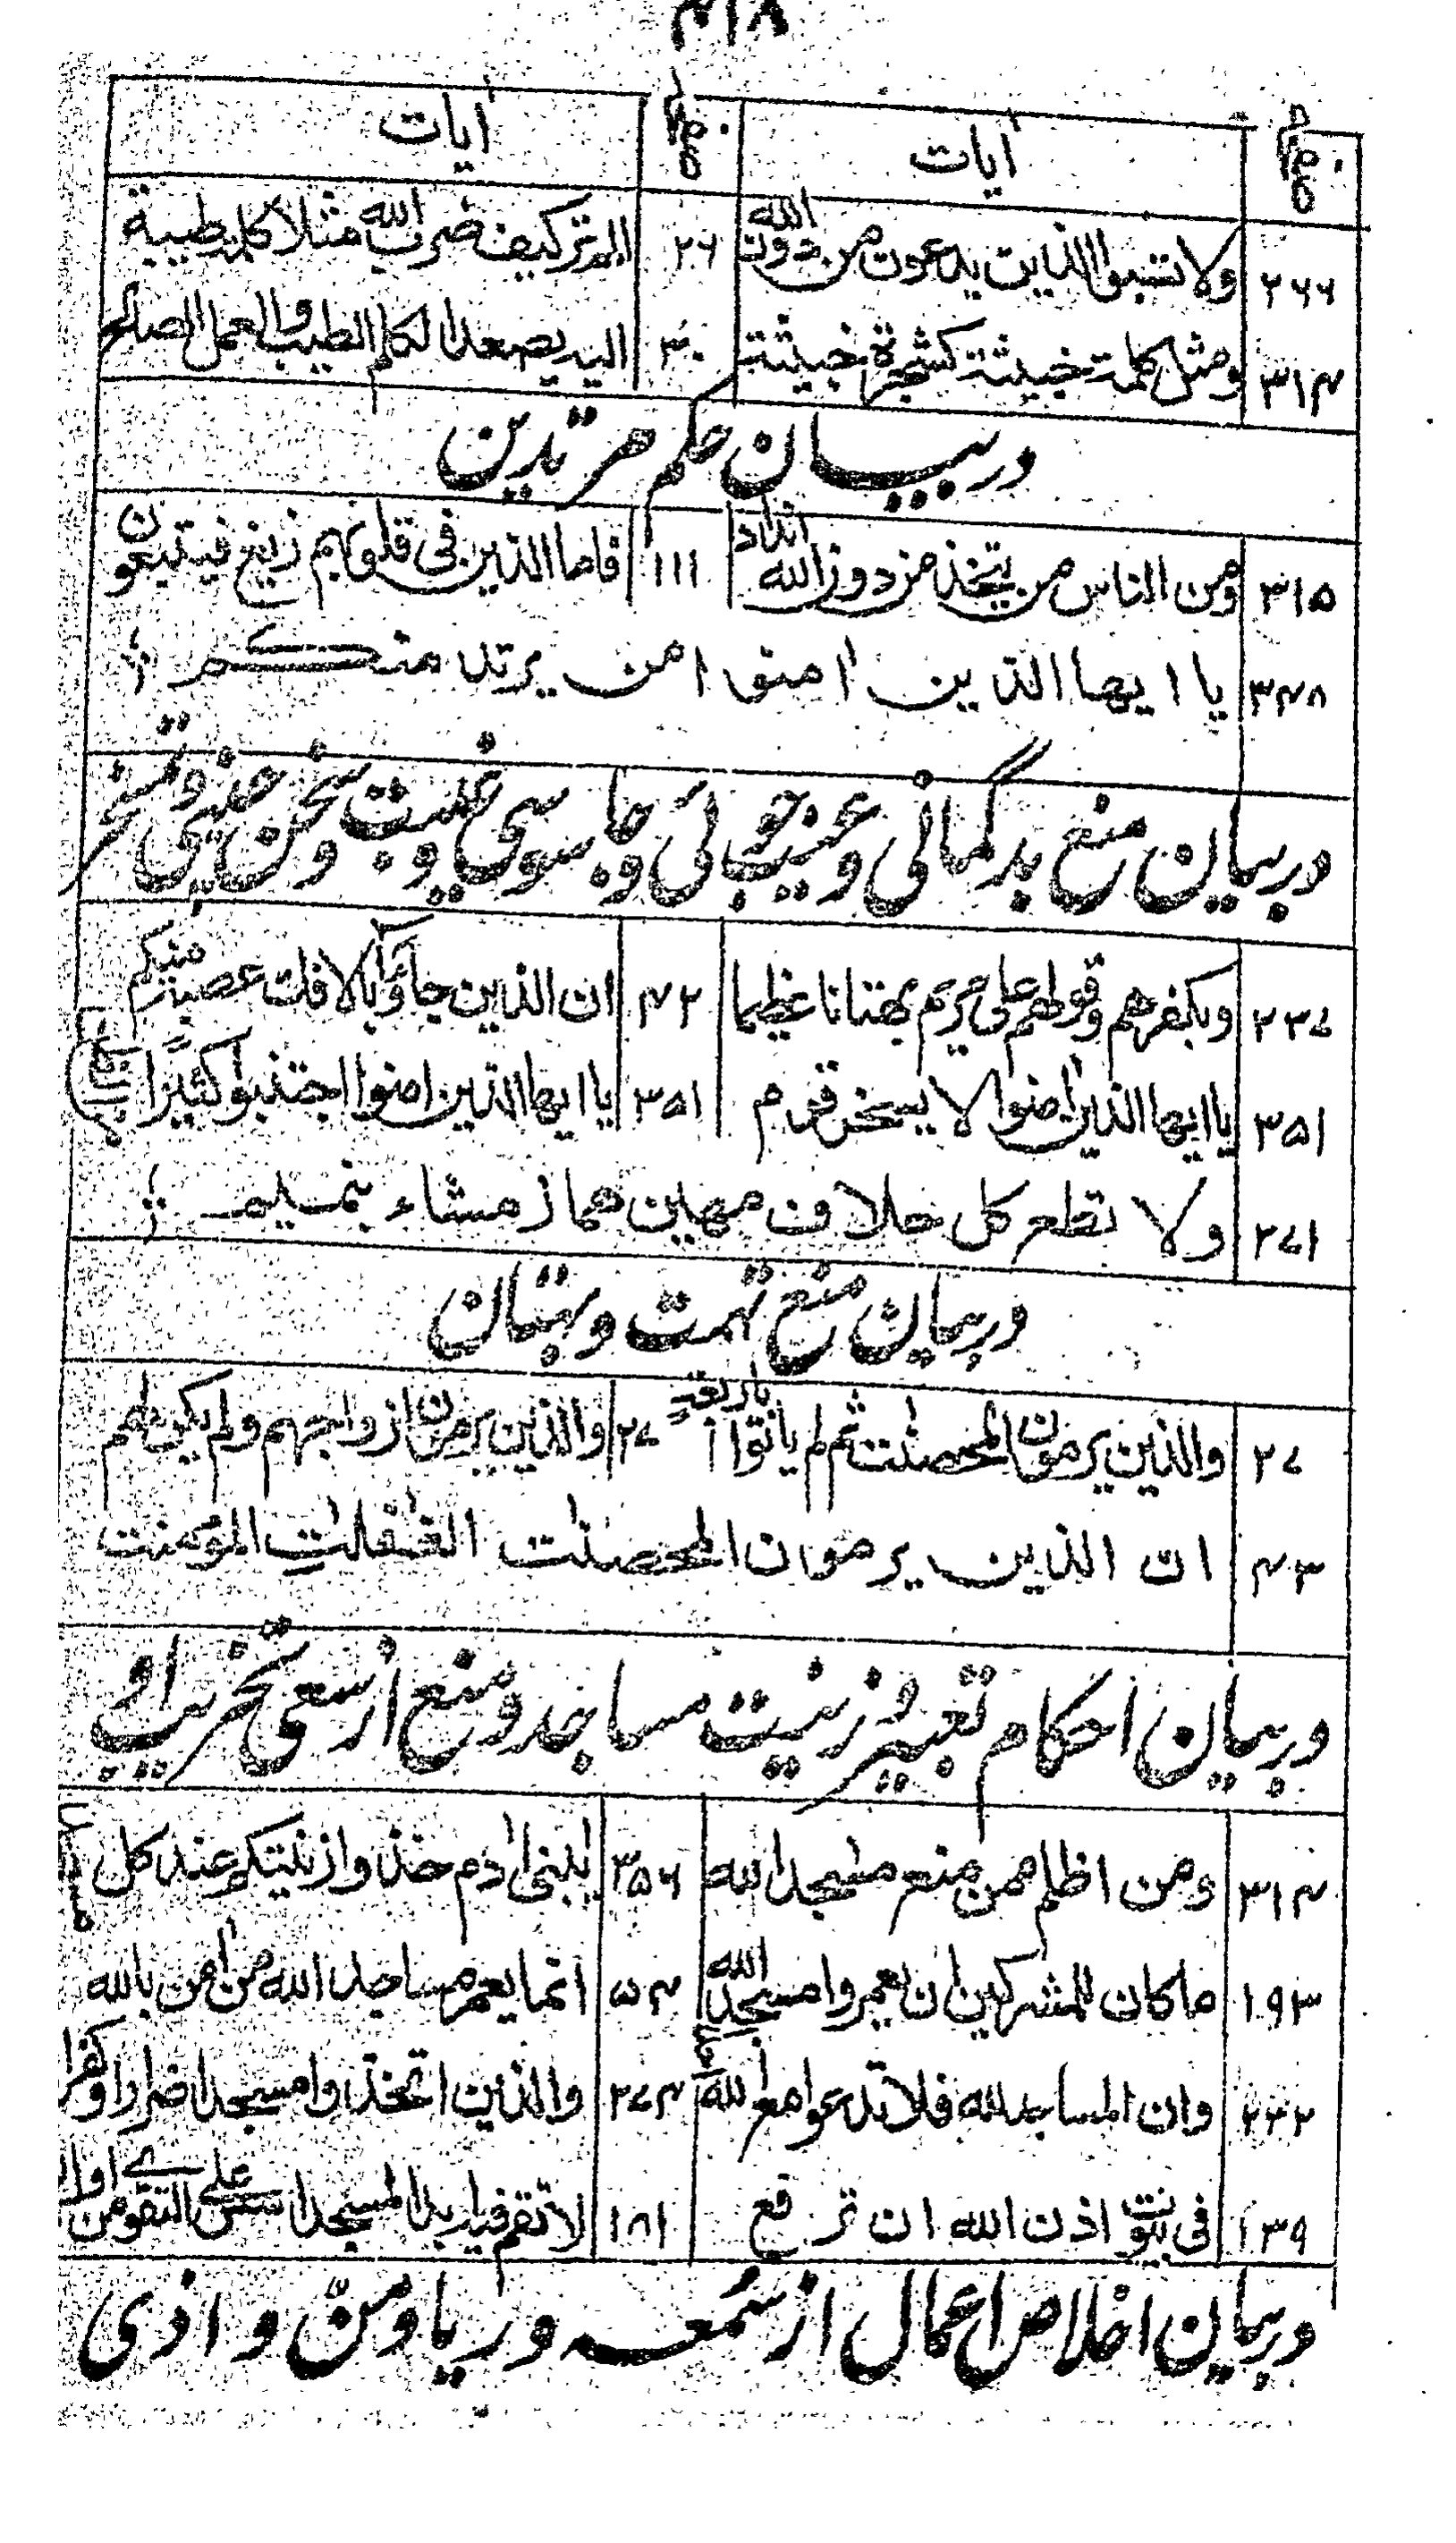 ۴۱۸
صفحہ آیات صفحہ آیات
۲۶۶ ولا تسبوا الذین یدعون من دون الله ۲۶ الم تر کیف ضرب الله مثلا کلمة طیبة
۳۱۴ ومثل کلمة خبیثة کشجرة خبیثة ۳۰ الیه یصعد الکلم الطیب والعمل الصالح
در بیان حکم مرتدین
۳۱۵ ومن الناس من یتخذ من دون الله انداد ۱۱۱ فاما الذین فی قلوبهم زیغ فیتبعون
۳۴۸ یا ایها الذین اٰمنوا من یرتد منکم
در بیان منع بدگمانی و عیب جوئی و جاسوسی و غیبت و سخن چینی و تمسخر
۲۳۷ وبکفرهم وقولهم علی مریم بهتانا عظیما ۴۲ ان الذین جاؤا بالافک عصبة منکم
۳۵۱ یا ایها الذین اٰمنوا لا یسخر قوم ۳۵۱ یا ایها الذین امنوا اجتنبوا کثیرًا
۲۷۱ ولا تطع کل حلاف مهین هماز مشاء بنمیم
در بیان منع تهمت و بهتان
۲۷ والذین یرمون المحصنٰت ثم لم یاتوا باربعة ۲۷ والذین یرمون ازواجهم ولم یکن لهم
۴۳ ان الذین یرمون المحصنٰت الغٰفلٰتِ المؤمنت
در بیان احکام تعمیر و زینت مساجد و منع از سعی تخریب او
۳۱۴ ومن اظلم ممن منع مسٰجد الله ۳۵۶ یٰبنی اٰدم خذوا زینتکم عند کل
۱۹۳ ما کان للمشرکین ان یعمروا مسٰجد الله ۵۴ انما یعمر مساجد الله من اٰمن بالله
۲۳۲ وان المساجد لله فلا تدعوا مع الله ۲۷۴ والذین اتخذوا مسجدا ضرارا وکفرا
۱۳۹ فی بیوت اذن الله ان ترفع ۱۸۱ لا تقم فیه ابدا لمسجد اسس علی التقوی من اول
در بیان اخلاص اعمال از سُمعه و ریا و منّ و اذی